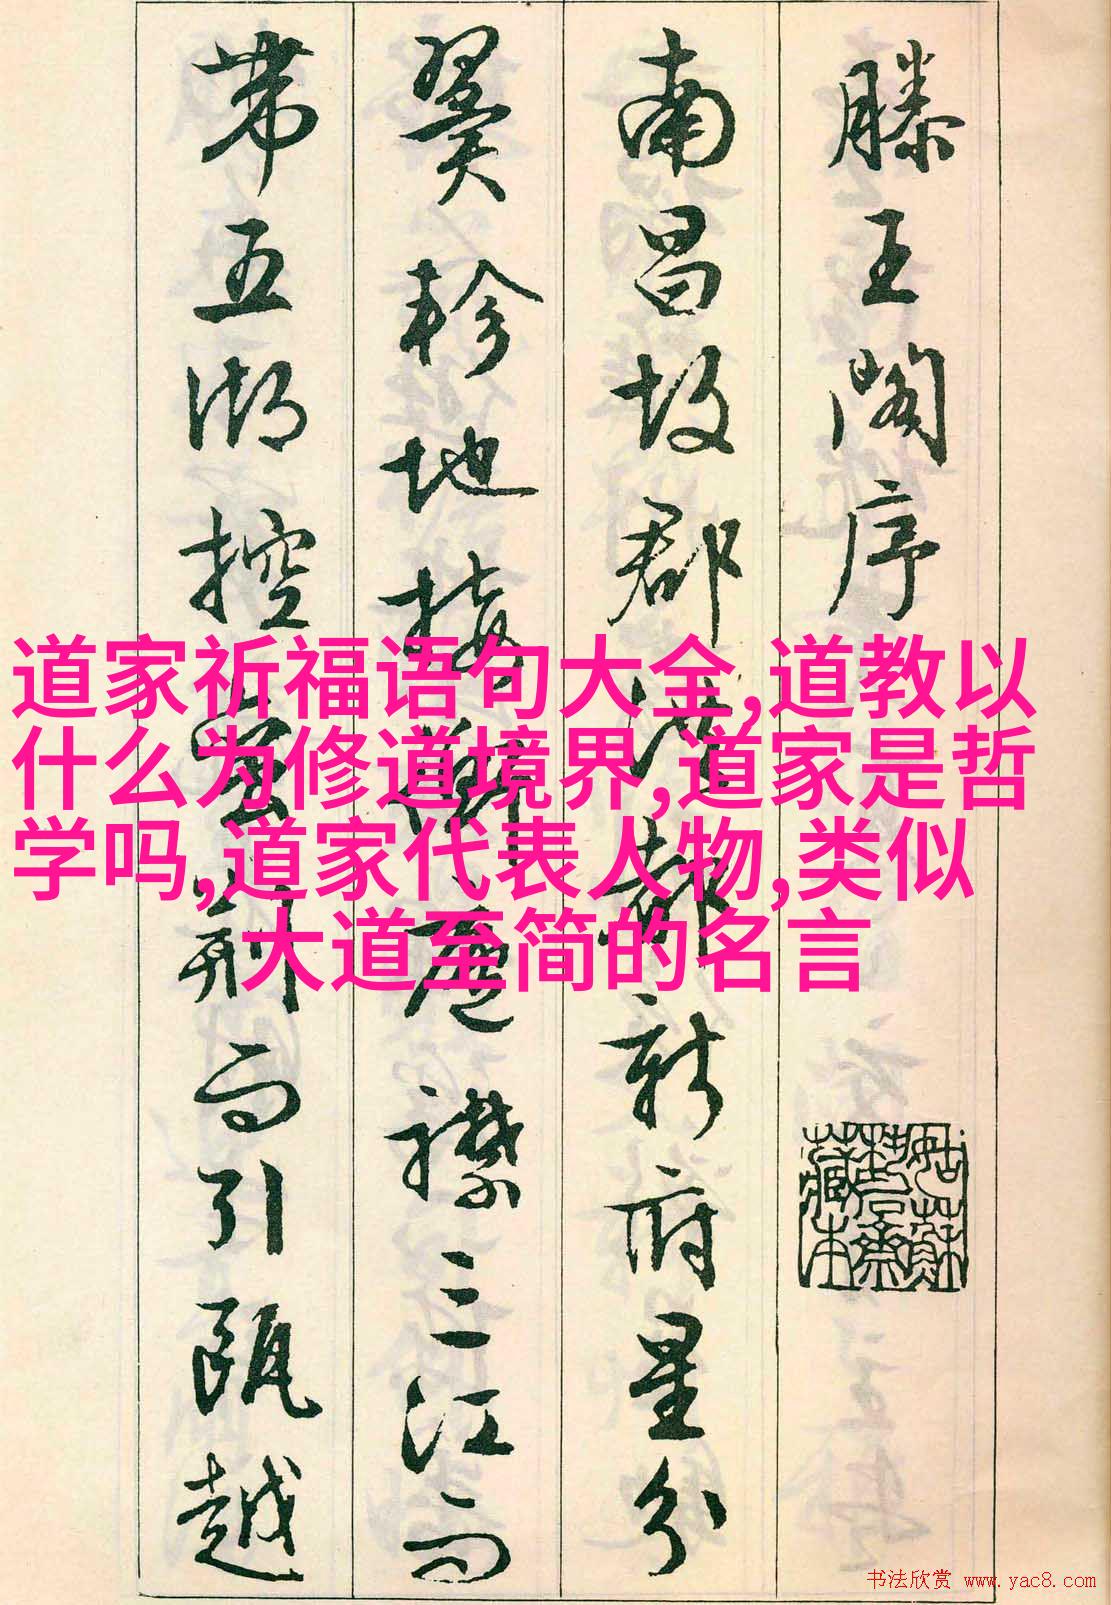 滕王阁序
南昌故郡洪都新府星分
翼轸地接衡庐襟三江而
带五湖控蛮荆而引瓯越
道家祈福语句大全,道教以
什么为修道境界,道家是哲
学吗,道家代表人物,类似
大道至简的名言
姑苏
藏本
书法欣赏 www.yac8.com